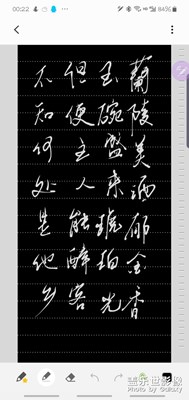 00:22
84%
蘭陵美酒郁金香
玉碗盛来琥珀光
但使主人能醉客
不知何处是他乡
盖乐世社区